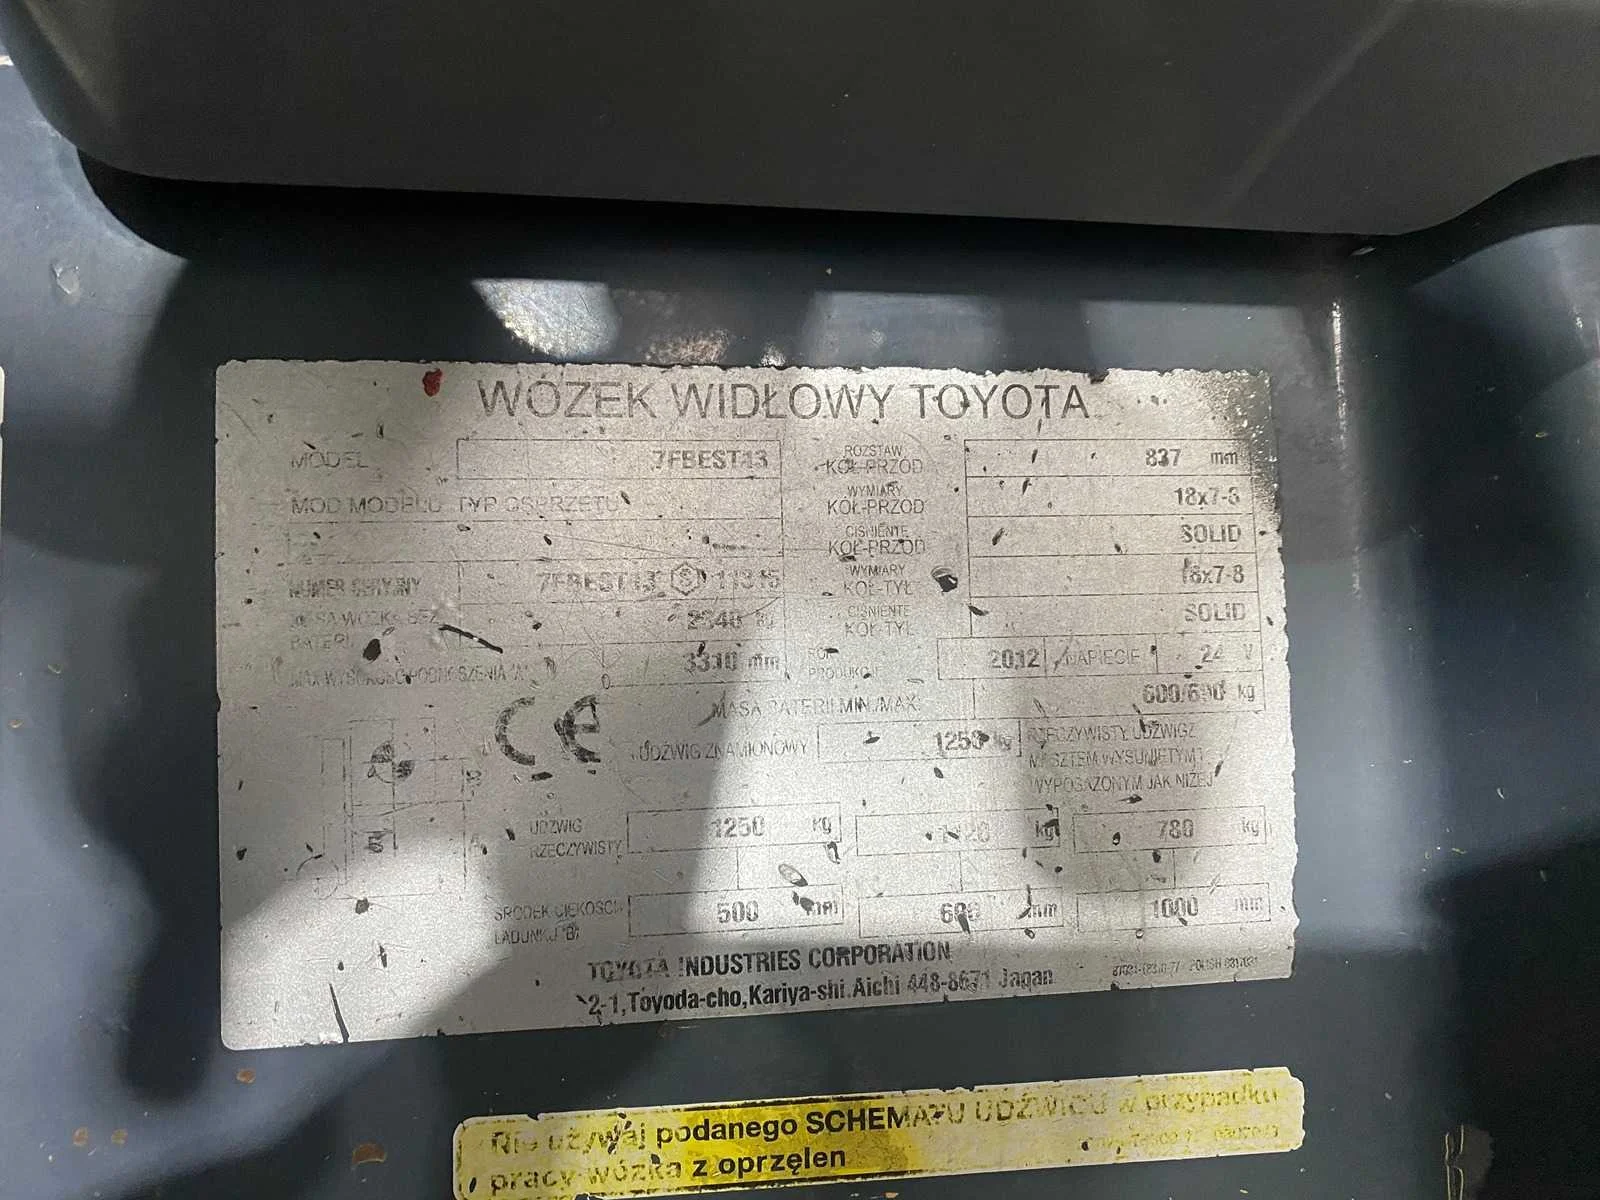 WÓZEK WIDŁOWY TOYOTA
MODEL 7FBEST13
MOD MODELU TYP OSPRZĘTU
NUMER SERYJNY 7FBEST13 11315
MASA WÓZKA BEZ
BATERII kg
MAX WYSOKOŚĆ PODNOSZENIA "A" 3310 mm
ROZSTAW
KÓŁ-PRZÓD 837 mm
WYMIARY
KÓŁ-PRZÓD 18x7-8
CIŚNIENTE
KÓŁ-PRZÓD SOLID
WYMIARY
KÓŁ-TYŁ 18x7-8
CIŚNIENTE
KÓŁ-TYŁ SOLID
ROK
PRODUKCJI 2012 NAPIĘCIE 24 V
MASA BATERII MIN./MAX. kg
CE
UDŹWIG ZNAMIONOWY 1250 kg
RZECZYWISTY UDŹWIG Z
MASZTEM WYSUNIĘTYM I
WYPOSAŻONYM JAK NIŻEJ
UDŹWIG
RZECZYWISTY 1250 kg kg 780 kg
ŚRODEK CIĘŻKOŚCI
ŁADUNKU "B" 500 mm 600 mm 1000 mm
TOYOTA INDUSTRIES CORPORATION
2-1,Toyoda-cho,Kariya-shi.Aichi 448-8671 Japan
POLISH
Nie używaj podanego SCHEMATU UDŹWIGU w przypadku
pracy wózka z oprzęłen